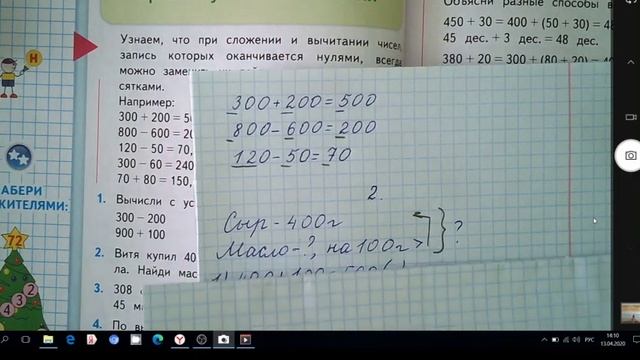 Узнаем, что при сложении и вычитании чисел,
запись которых оканчивается нулями, всегда
можно
сятками.
Например:
300 + 200 = 50
800 − 600 = 20
120 − 50 = 70,
300 − 60 = 240
70 + 80 = 150,
1. Вычисли с
300 − 200
900 + 100
2. Витя купил 40
ла. Найди
3. 308
45
4. По
Н
72
4 3 2
Объясни разные способы
450 + 30 = 400 + (50 + 30) = 48
45 дес. + 3 дес. = 48 дес.
380 + 20 = 300 + (80 + 20)
300 + 200 = 500
800 − 600 = 200
120 − 50 = 70
2.
Сыр - 400г
Масло - ?, на 100г > ?
1) 400 + 100 = 500
РУС
14:10
13.04.2020